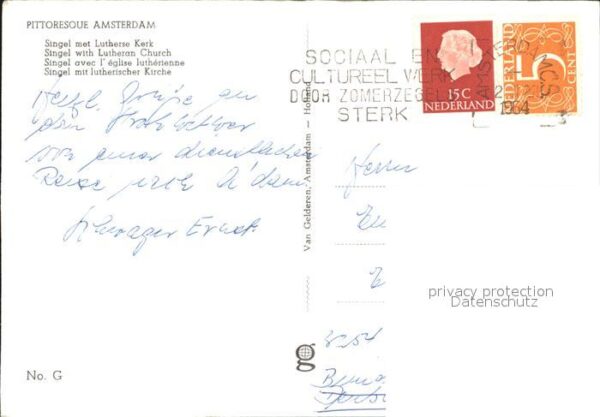 PITTORESQUE AMSTERDAM
Singel met Lutherse Kerk
Singel with Lutheran Church
Singel avec l' église luthérienne
Singel mit lutherischer Kirche
Herzl. Grüße
von einer dienstlichen
Reise nach A'dam
Schwager Ernst
No. G
Van Gelderen, Amsterdam — Holland
SOCIAAL EN
CULTUREEL WERK
DOOR ZOMERZEGELS
STERK
AMSTERDAM C.S.
1964
15 C
NEDERLAND
NEDERLAND
5
CENT
Herrn
privacy protection
Datenschutz